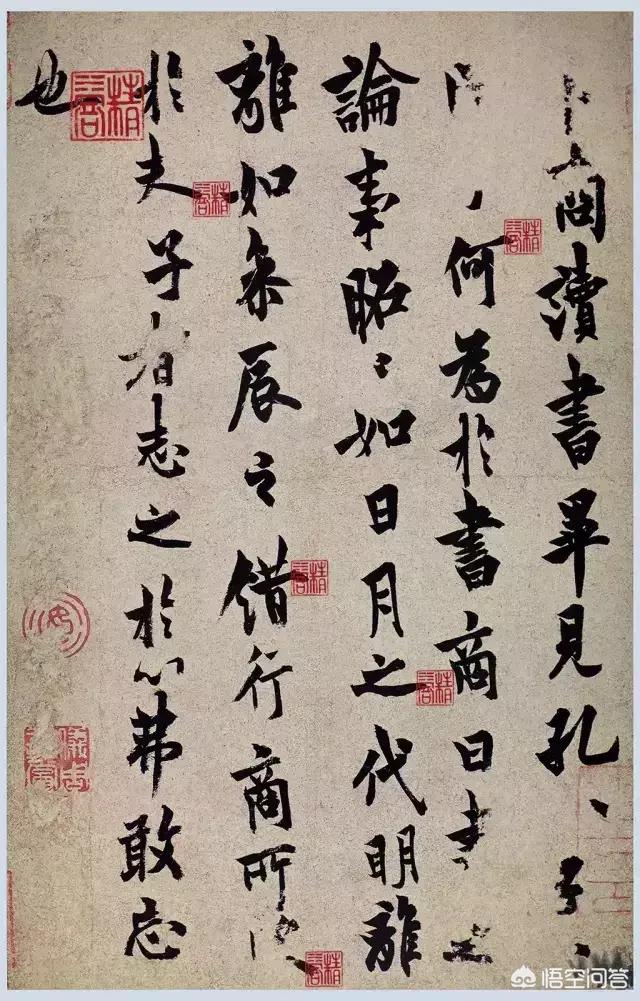 卜商讀書畢見孔、子、
何為於書商曰書之
論事昭〻如日月之代明離
離如參辰之錯行商所
於夫子者志之於心弗敢忘
也
悟空问答